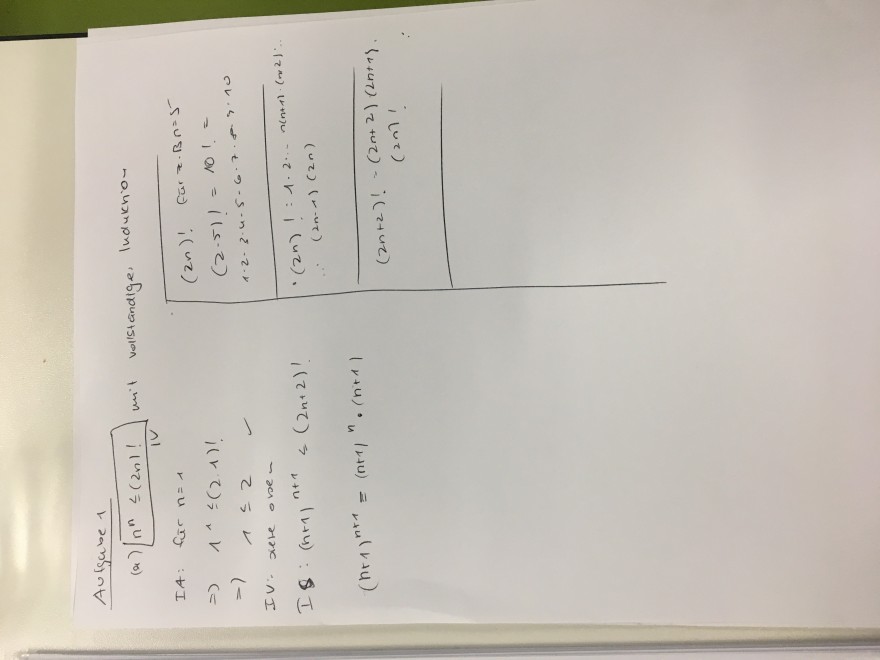 Aufgabe 1
(a) nⁿ ≤ (2n)! mit vollständiger Induktion
IV
IA: für n=1
=> 1¹ ≤ (2·1)!
=> 1 ≤ 2 ✓
IV: siehe oben
IS: (n+1)ⁿ⁺¹ ≤ (2n+2)!
(n+1)ⁿ⁺¹ = (n+1)ⁿ · (n+1)
(2n)! für z.B n=5
(2·5)! = 10! =
1·2·3·4·5·6·7·8·9·10
(2n)! : 1·2·... n(n+1)·(n+2)·..
... (2n-1) (2n)
(2n+2)! = (2n+2) (2n+1)·
(2n)!